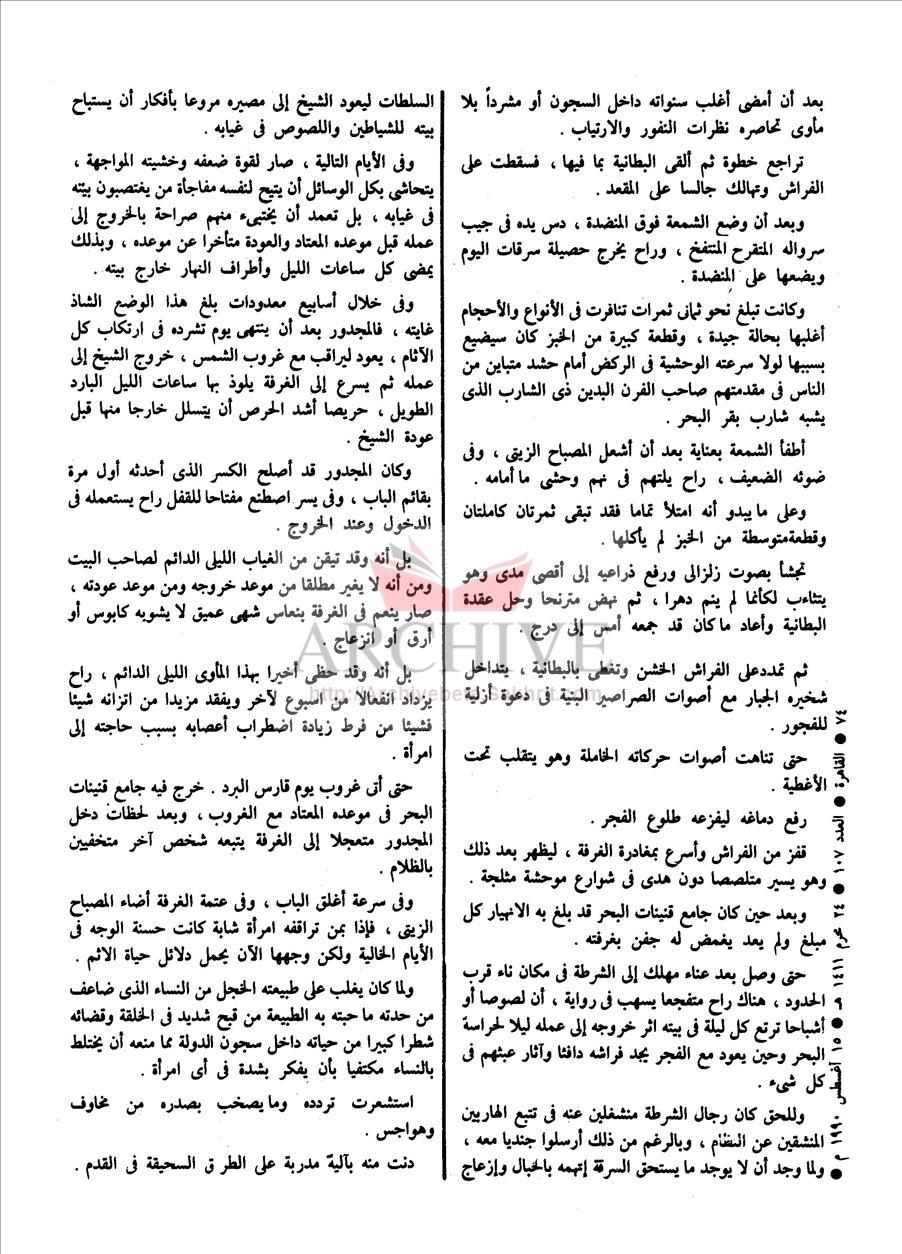 بعد أن أمضى أغلب سنواته داخل السجون أو مشرداً بلا
مأوى تحاصره نظرات النفور والارتياب .
تراجع خطوة ثم ألقى البطانية بما فيها ، فسقطت على
الفراش وتهالك جالسا على المقعد .
وبعد أن وضع الشمعة فوق المنضدة ، دس يده فى جيب
سرواله المتقرح المنتفخ ، وراح يخرج حصيلة سرقات اليوم
ويضعها على المنضدة .
وكانت تبلغ نحو ثمانى ثمرات تنافرت فى الأنواع والأحجام
أغلبها بحالة جيدة ، وقطعة كبيرة من الخبز كان سيضيع
بسببها لولا سرعته الوحشية فى الركض أمام حشد متباين من
الناس فى مقدمتهم صاحب الفرن البدين ذى الشارب الذى
يشبه شارب بقر البحر .
أطفأ الشمعة بعناية بعد أن أشعل المصباح الزيتى ، وفى
ضوئه الضعيف ، راح يلتهم فى نهم وحشى ما أمامه .
وعلى ما يبدو أنه امتلأ تماما فقد تبقى ثمرتان كاملتان
وقطعة متوسطة من الخبز لم يأكلها .
تجشأ بصوت زلزالى ورفع ذراعيه إلى أقصى مدى وهو
يتثاءب لكأنما لم ينم دهرا ، ثم نهض مترنحا وحل عقدة
البطانية وأعاد ما كان قد جمعه أمس إلى درج .
ثم تمدد على الفراش الخشن وتغطى بالبطانية ، يتداخل
شخيره الجبار مع أصوات الصراصير البنية فى دعوة أزلية
للفجور .
حتى تناهت أصوات حركاته الخاملة وهو يتقلب تحت
الأغطية .
رفع دماغه ليفزعه طلوع الفجر .
قفز من الفراش وأسرع بمغادرة الغرفة ، ليظهر بعد ذلك
وهو يسير متلصصا دون هدى فى شوارع موحشة مثلجة .
وبعد حين كان جامع قنينات البحر قد بلغ به الانهيار كل
مبلغ ولم يعد يغمض له جفن بغرفته .
حتى وصل بعد عناء مهلك إلى الشرطة فى مكان ناء قرب
الحدود ، هناك راح متفجعا يسهب فى رواية ، أن لصوصا أو
أشباحا ترتع كل ليلة فى بيته اثر خروجه إلى عمله ليلا لحراسة
البحر وحين يعود مع الفجر يجد فراشه دافئا وآثار عبثهم فى
كل شىء .
وللحق كان رجال الشرطة منشغلين عنه فى تتبع الهاربين
المنشقين عن النظام ، وبالرغم من ذلك أرسلوا جنديا معه ،
ولما وجد أن لا يوجد ما يستحق السرقة إتهمه بالخبال وإزعاج
السلطات ليعود الشيخ إلى مصيره مروعا بأفكار أن يستباح
بيته للشياطين واللصوص فى غيابه .
وفى الأيام التالية ، صار لقوة ضعفه وخشيته المواجهة ،
يتحاشى بكل الوسائل أن يتيح لنفسه مفاجأة من يغتصبون بيته
فى غيابه ، بل تعمد أن يختبىء منهم صراحة بالخروج إلى
عمله قبل موعده المعتاد والعودة متأخرا عن موعده ، وبذلك
يمضى كل ساعات الليل وأطراف النهار خارج بيته .
وفى خلال أسابيع معدودات بلغ هذا الوضع الشاذ
غايته ، فالمجدور بعد أن ينتهى يوم تشرده فى ارتكاب كل
الآثام ، يعود ليراقب مع غروب الشمس ، خروج الشيخ إلى
عمله ثم يسرع إلى الغرفة يلوذ بها ساعات الليل البارد
الطويل ، حريصا أشد الحرص أن يتسلل خارجا منها قبل
عودة الشيخ .
وكان المجدور قد أصلح الكسر الذى أحدثه أول مرة
بقائم الباب ، وفى يسر اصطنع مفتاحا للقفل راح يستعمله فى
الدخول وعند الخروج .
بل أنه وقد تيقن من الغياب الليلى الدائم لصاحب البيت
ومن أنه لا يغير مطلقا من موعد خروجه ومن موعد عودته ،
صار ينعم فى الغرفة بنعاس شهى عميق لا يشوبه كابوس أو
أرق أو انزعاج .
بل أنه وقد حظى أخيرا بهذا المأوى الليلى الدائم ، راح
يزداد انفعالا من أسبوع لآخر ويفقد مزيدا من اتزانه شيئا
فشيئا من فرط زيادة اضطراب أعصابه بسبب حاجته إلى
امرأة .
حتى أتى غروب يوم قارس البرد . خرج فيه جامع قنينات
البحر فى موعده المعتاد مع الغروب ، وبعد لحظات دخل
المجدور متعجلا إلى الغرفة يتبعه شخص آخر متخفيين
بالظلام .
وفى سرعة أغلق الباب ، وفى عتمة الغرفة أضاء المصباح
الزيتى ، فإذا بمن ترافقه امرأة شابة كانت حسنة الوجه فى
الأيام الخالية ولكن وجهها الآن يحمل دلائل حياة الاثم .
ولما كان يغلب على طبيعته الخجل من النساء الذى ضاعف
من حدته ما حبته به الطبيعة من قبح شديد فى الخلقة وقضائه
شطرا كبيرا من حياته داخل سجون الدولة مما منعه أن يختلط
بالنساء مكتفيا بأن يفكر بشدة فى أى امرأة .
استشعرت تردده وما يصخب بصدره من مخاوف
وهواجس .
دنت منه بآلية مدربة على الطرق السحيقة فى القدم .
٧٤ ● القاهرة ● العدد ١٠٧ ● ٢٤ محرم ١٤١١ هـ ● ١٥ أغسطس ١٩٩٠ م ●
ARCHIVE
http://Archivebeta.Sakhrit.com